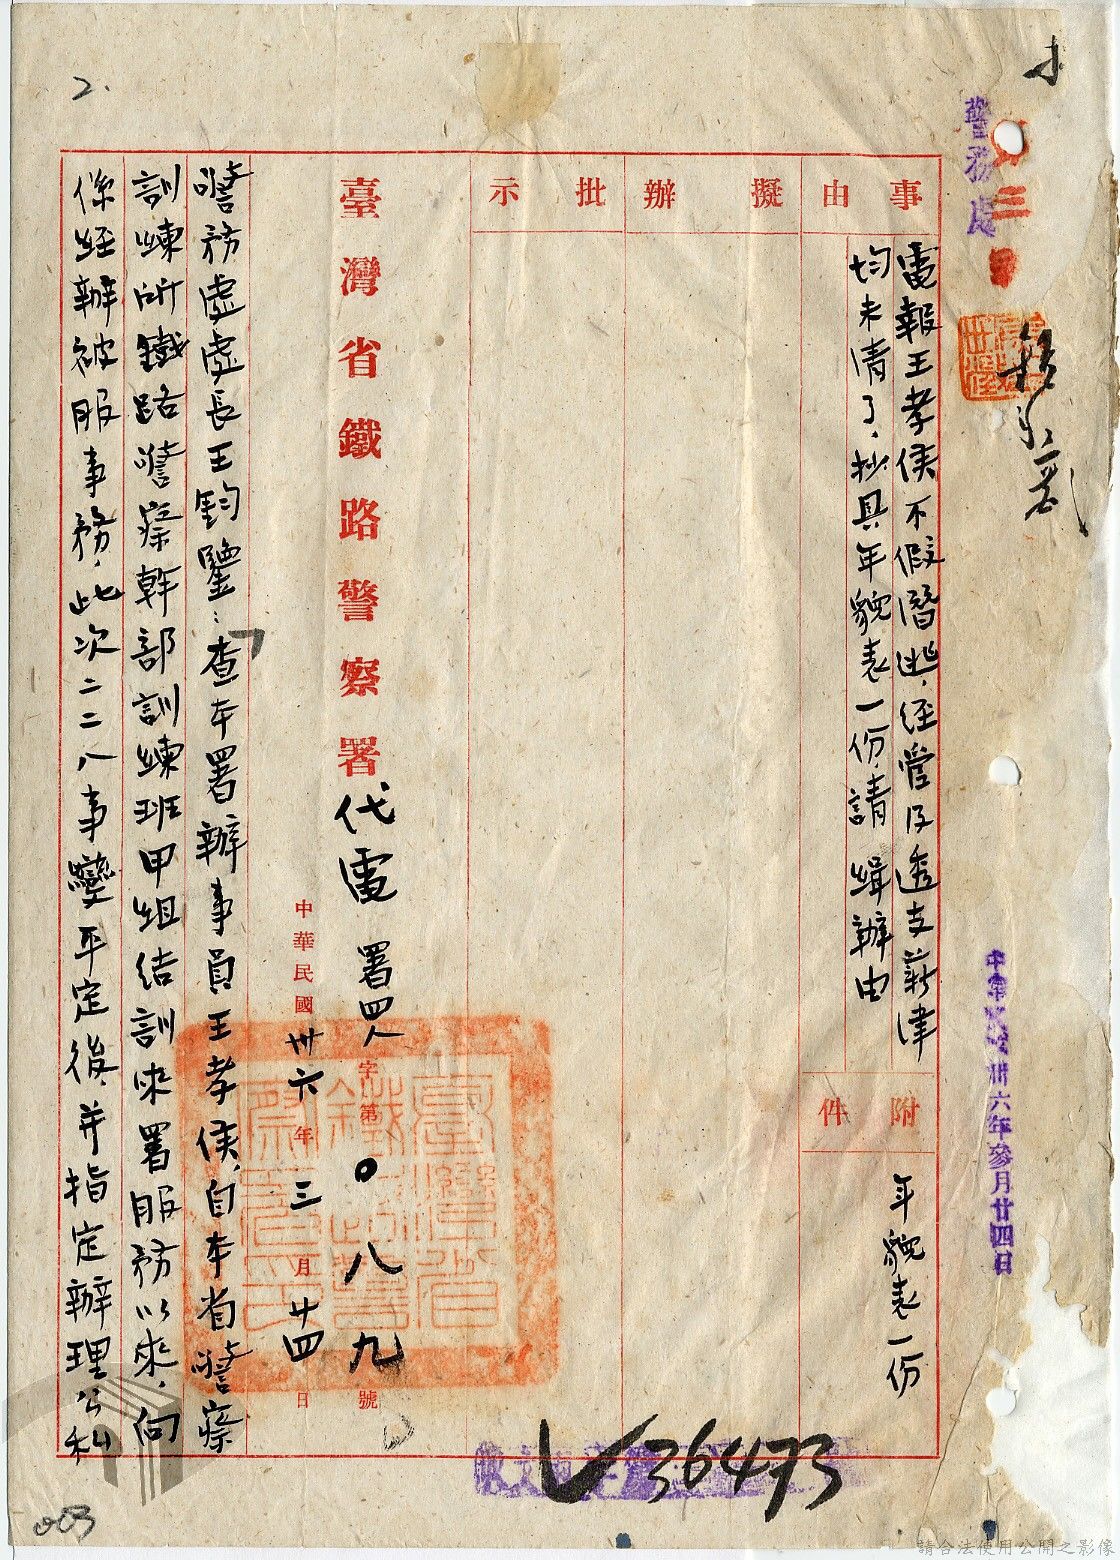 2.
警務處
中華民國卅六年參月廿四日
事由
電報王孝侯不假潛逃，經管及透支薪津
均未清了，抄具年貌表一份，請 緝辦由
附件
年貌表一份
擬辦
批示
臺灣省鐵路警察署代電
署四人字第〇八九號
中華民國卅六年三月廿四日
臺灣省鐵路警察署印
警務處處長王鈞鑒：查本署辦事員王孝侯，自本省警察
訓練所鐵路警察幹部訓練班甲組結訓來署服務以來，向
係經辦被服事務，此次二二八事變平定後，并指定辦理公私
36473
003
請合法使用公開之影像